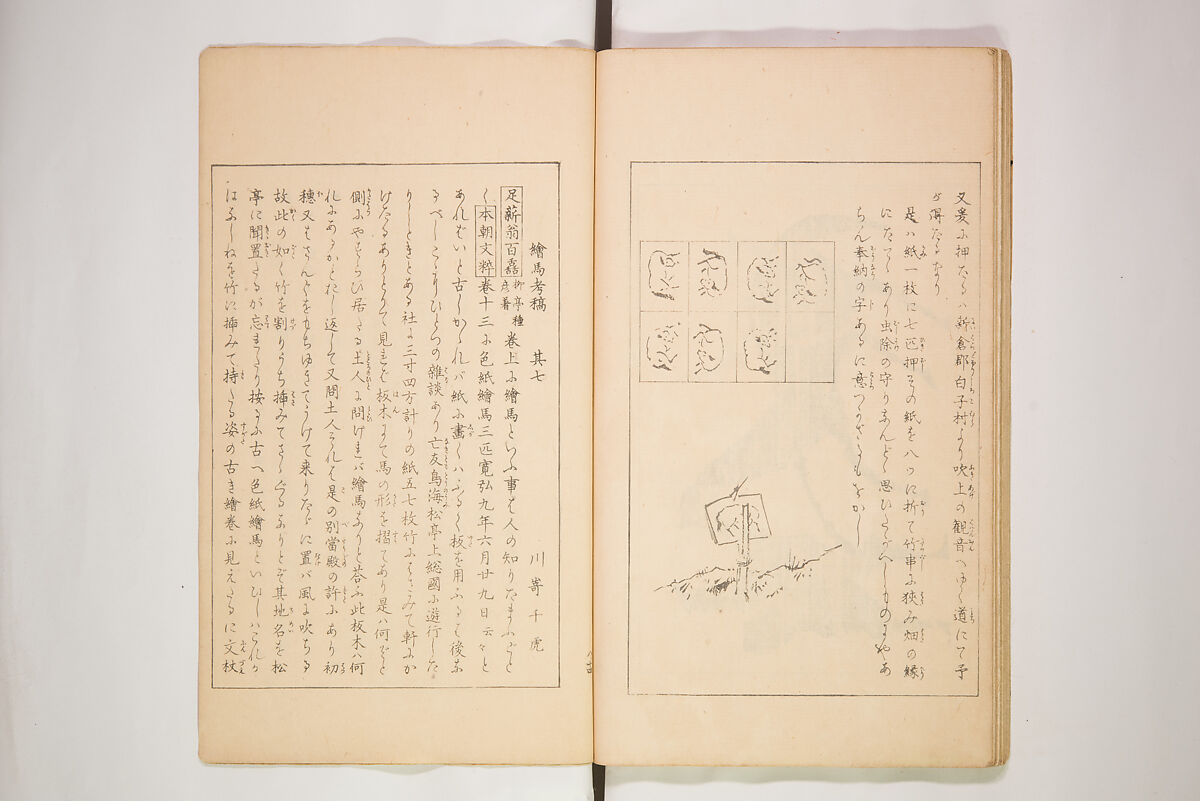 又爰に押たるハ新倉郡白子村より吹上の観音へゆく道にて予
が得たるなり
是ハ紙一枚に七匹押その紙を八ツに折て竹串に狭み畑の縁
にたてゝあり虫除の守りなんどゝ思ひたがへしものにやあ
ちん奉納の字あるに意つかざるもをかし
繪馬考稿 其七 川嵜千虎
足薪翁百磊 柳亭種彦著 巻上に繪馬といふ事は人の知りたまふごと
く本朝文粹巻十三に色紙繪馬三匹寛弘九年六月廿九日云々と
あれバいと古しかゝれバ紙に畫くハふるく板を用ふるは後な
るべしこゝにひとつの雜談あり亡友鳥海松亭上総國に遊行した
りしときとある社に三寸四方計りの紙五七枚竹にはさみて軒にか
けたるありとりて見れば板木にて馬の形を摺てあり是は何ぞと
側にやすらひ居たる土人に問けれバ繪馬なりと荅ふ此板木ハ何
れにあるかとおし返して又問土人それは是の別當殿の許にあり初
穂又はさんぐをもちゆきてうけて来りたゞに置バ風に吹ちる
故此の如く竹を割りうち挿みてさゝぐるなりとぞ其地名を松
亭に聞置たるが忘れたり按るに古へ色紙繪馬といひしハこれか
はふしねを竹に挿みて持たる姿の古き繪巻に見えたるに文杖